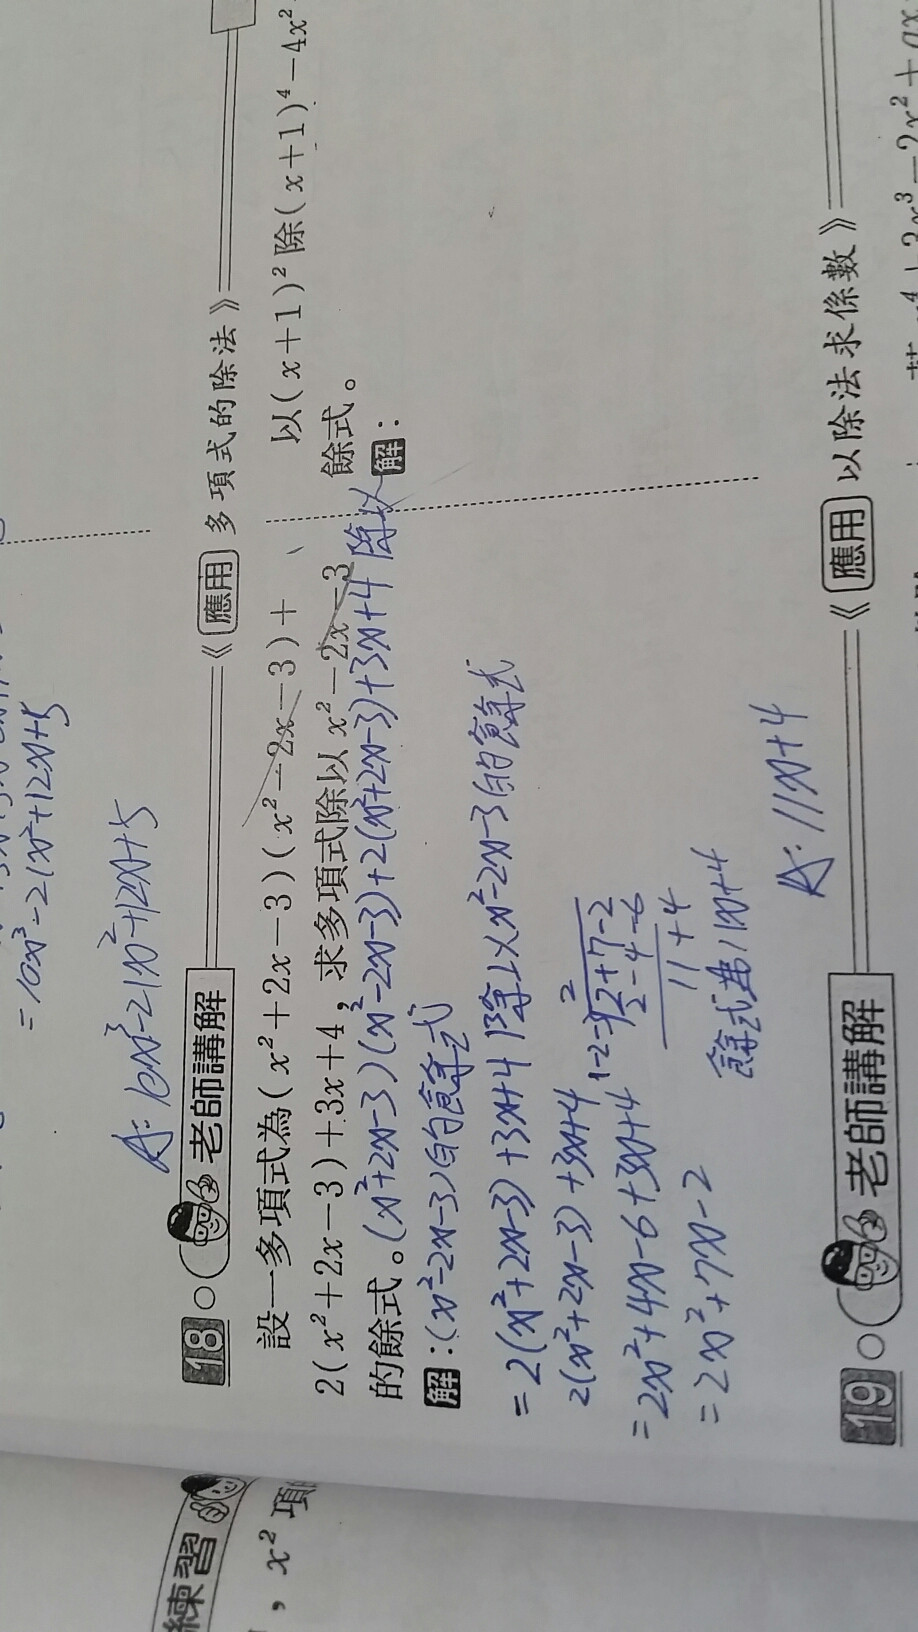 =10x³-21x²+12x+5
A:10x³-21x²+12x+5
18 老師講解 《應用 多項式的除法》
設一多項式為(x²+2x-3)(x²-2x-3)+
2(x²+2x-3)+3x+4,求多項式除以x²-2x-3
的餘式。(x²+2x-3)(x²-2x-3)+2(x²+2x-3)+3x+4除以
解:(x²-2x-3)的餘式
=2(x²+2x-3)+3x+4除以x²-2x-3的餘式
2(x²+2x-3)+3x+4
=2x²+4x-6+3x+4
=2x²+7x-2
2
1-2-3 2+7-2
2-4-6
11+4
餘式為11x+4
A:11x+4
以(x+1)²除(x+1)⁴-4x²
餘式。
解:
19 老師講解 《應用 以除法求係數》
練習
,x²項